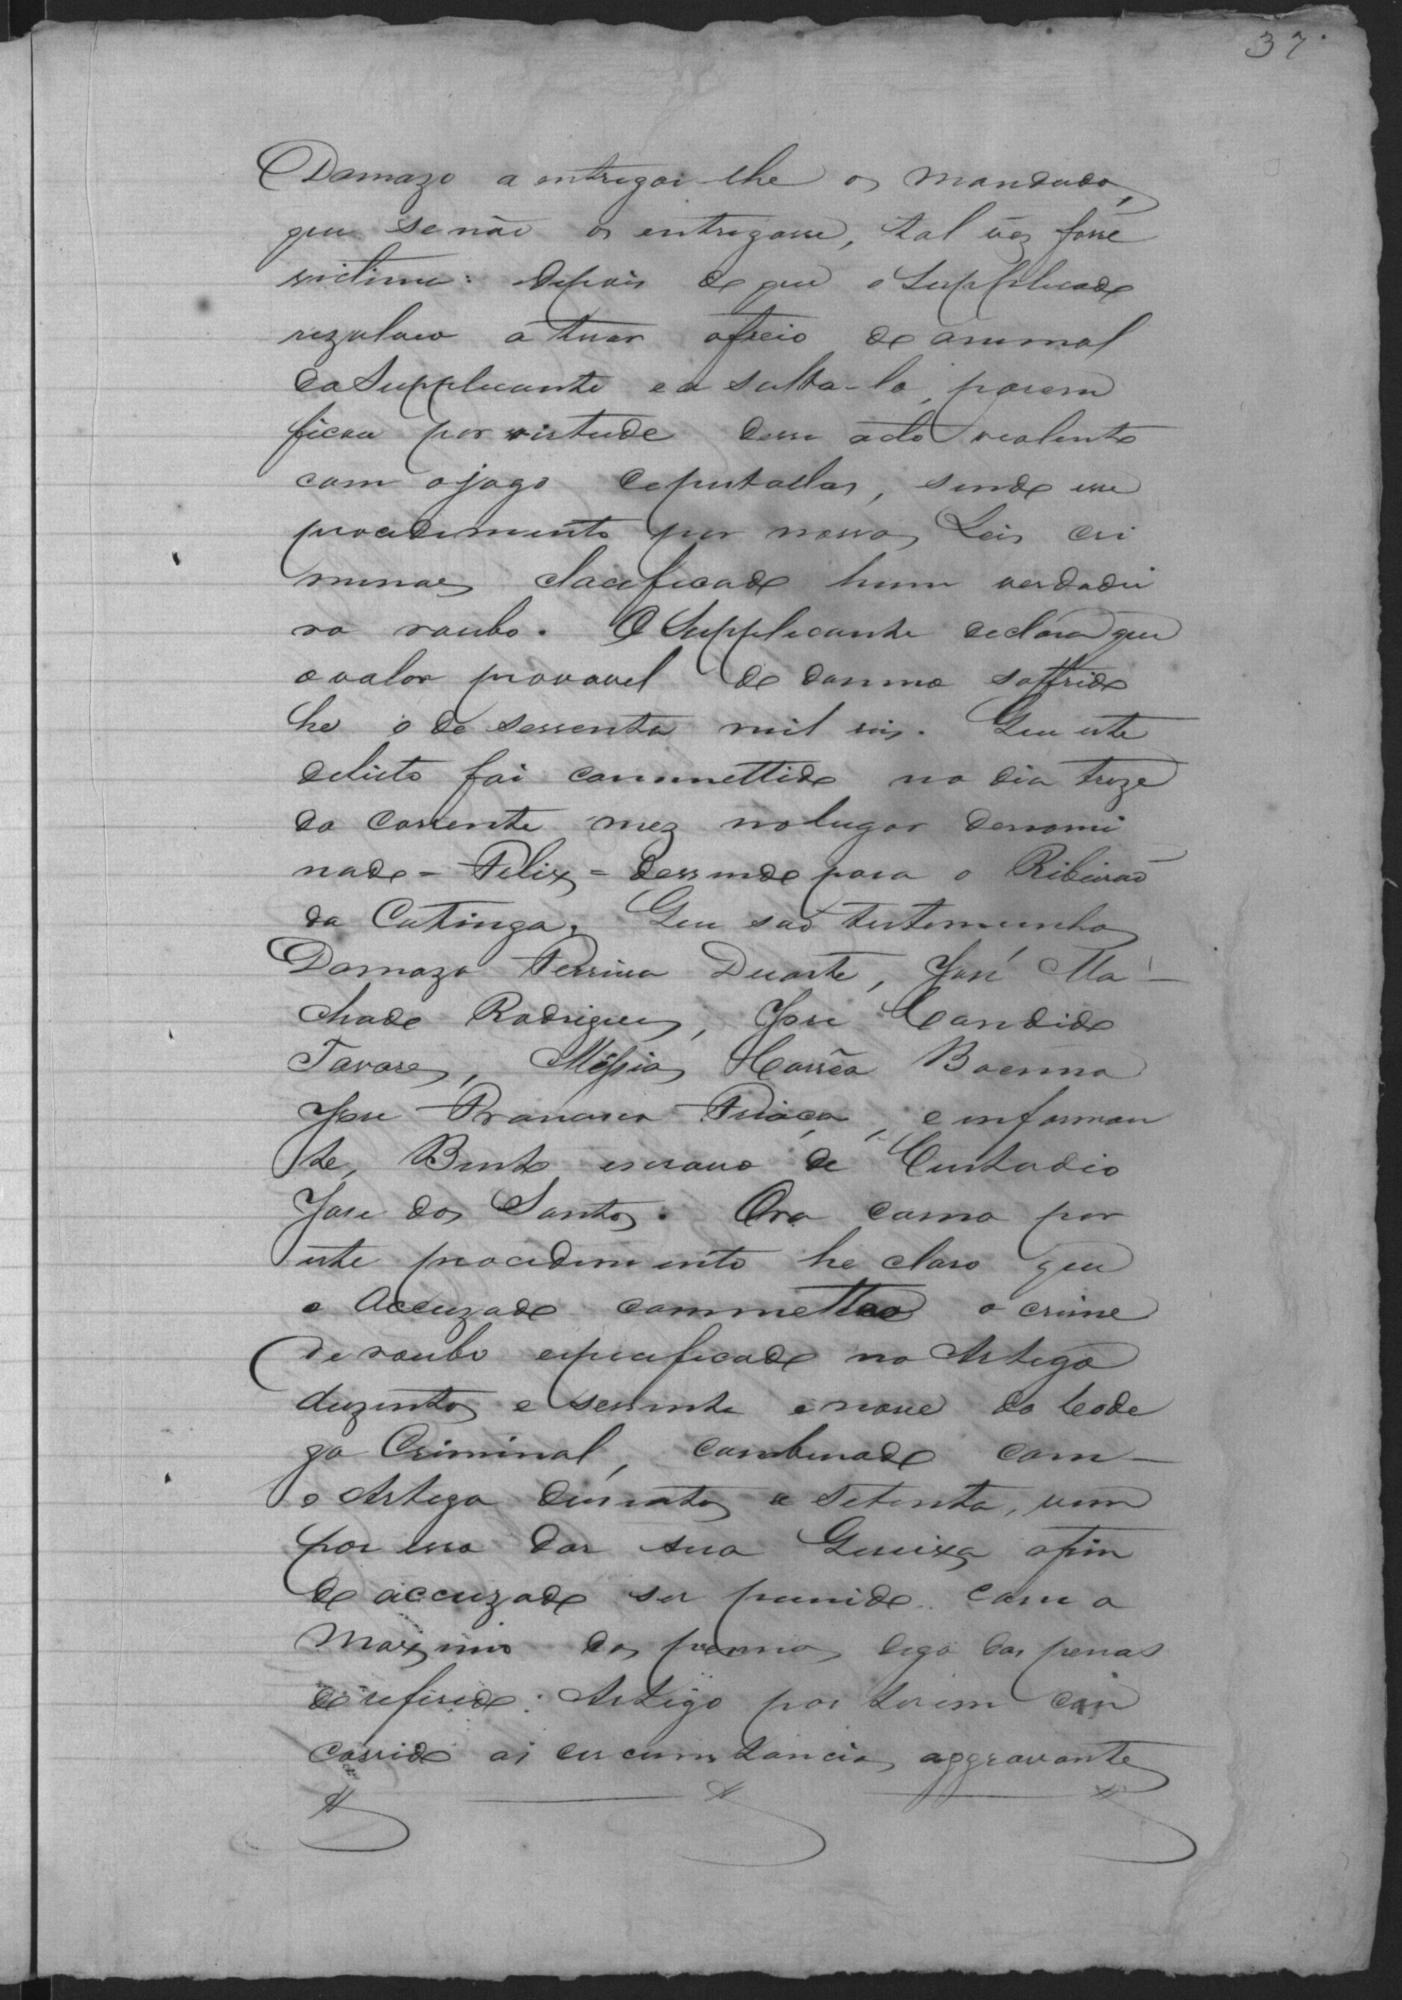 37
Damazo a entregar-lhe os mandados,
que senão os entregasse, tal vez fosse
victima: depois do que o Supplicado
rezolveo a tirar ofreio do animal
do Supplicante e a solta-lo, porem
ficou por virtude desse acto violento
com o jogo
procedimento por nossas Leis cri
minaes clacificado hum verdadei
ro roubo. O Supplicante declara que
o valor provavel do danno soffrido
he o de sessenta mil reis. Que este
delicto foi commettido no dia treze
do corrente mez no lugar denomi
nado = Felix = dessendo para o Ribeirão
da Catinga. Que são testemunhas
Damazo Ferreira Duarte, José Ma-
chado Rodrigues, Jose Candido
Tavares, Messias Corrêa Baenna
Jose Francisco e informan
te, Bento escravo de Custodio
Jose dos Santos. Ora como por
este procedimento he claro que
o Accuzado commetteo o crime
de roubo especificado no Artigo
duzentos e sessenta e nove do Code
go Criminal, combinado com
o Artigo duzentos e setenta, vem
por isso dar sua Queixa afim
do accuzado ser punido com o
Maximo das penna, digo das penas
do referido Artigo por terem con
corrido as circumstancias aggravantes